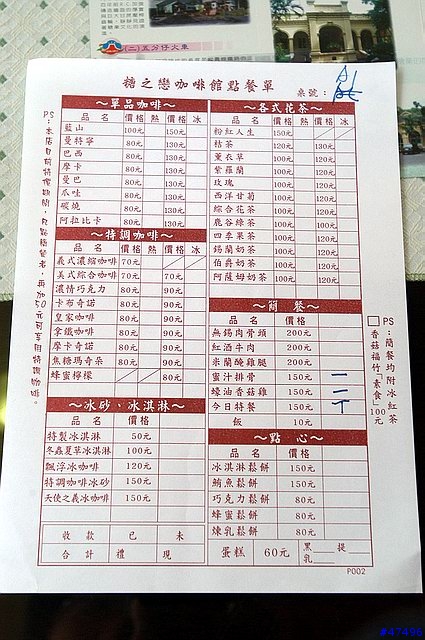 (二)五分仔火車
糖之戀咖啡館點餐單
桌號：
～單品咖啡～
品 名 價格 熱 價格 冰
藍山 100元 150元
曼特寧 80元 130元
巴西 80元 130元
摩卡 80元 130元
曼巴 80元 130元
爪哇 80元 130元
碳燒 80元 130元
阿拉比卡 80元 130元
～特調咖啡～
品 名 價格 熱 價格 冰
義式濃縮咖啡 70元
美式綜合咖啡 70元 70元
濃情巧克力 80元 90元
卡布奇諾 80元 90元
皇家咖啡 80元 90元
拿鐵咖啡 80元 90元
摩卡奇諾 80元 90元
焦糖瑪奇朵 80元 90元
蜂蜜檸檬 80元
～冰砂、冰淇淋～
品 名 價格
特製冰淇淋 50元
冬蟲夏草冰淇淋 100元
飄浮冰咖啡 120元
特調咖啡冰砂 150元
天使之義冰咖啡 150元
收款 已 未
合計 禮 現
～各式花茶～
品 名 價格 熱 價格 冰
粉紅人生 150元
桔茶 120元 130元
薰衣草 100元 120元
紫羅蘭 100元 120元
玫瑰 100元 120元
西洋甘菊 100元 120元
綜合花茶 100元 120元
鹿谷綠茶 100元 120元
四季果茶 100元 120元
錫蘭奶茶 100元 120元
伯爵奶茶 100元 120元
阿薩姆奶茶 100元 120元
～簡 餐～
品 名 價格
無錫肉骨頭 200元
紅酒牛肉 200元
米蘭醃雞腿 200元
蜜汁排骨 150元 一
蠔油香菇雞 150元 二
今日特餐 150元 丅
飯 10元
～點 心～
品 名 價格
冰淇淋鬆餅 150元
鮪魚鬆餅 150元
巧克力鬆餅 80元
蜂蜜鬆餅 80元
煉乳鬆餅 80元
蛋糕 60元 黑 提
乳
P002
PS：簡餐均附冰紅茶
□香菇福竹「素食」100元
#47496